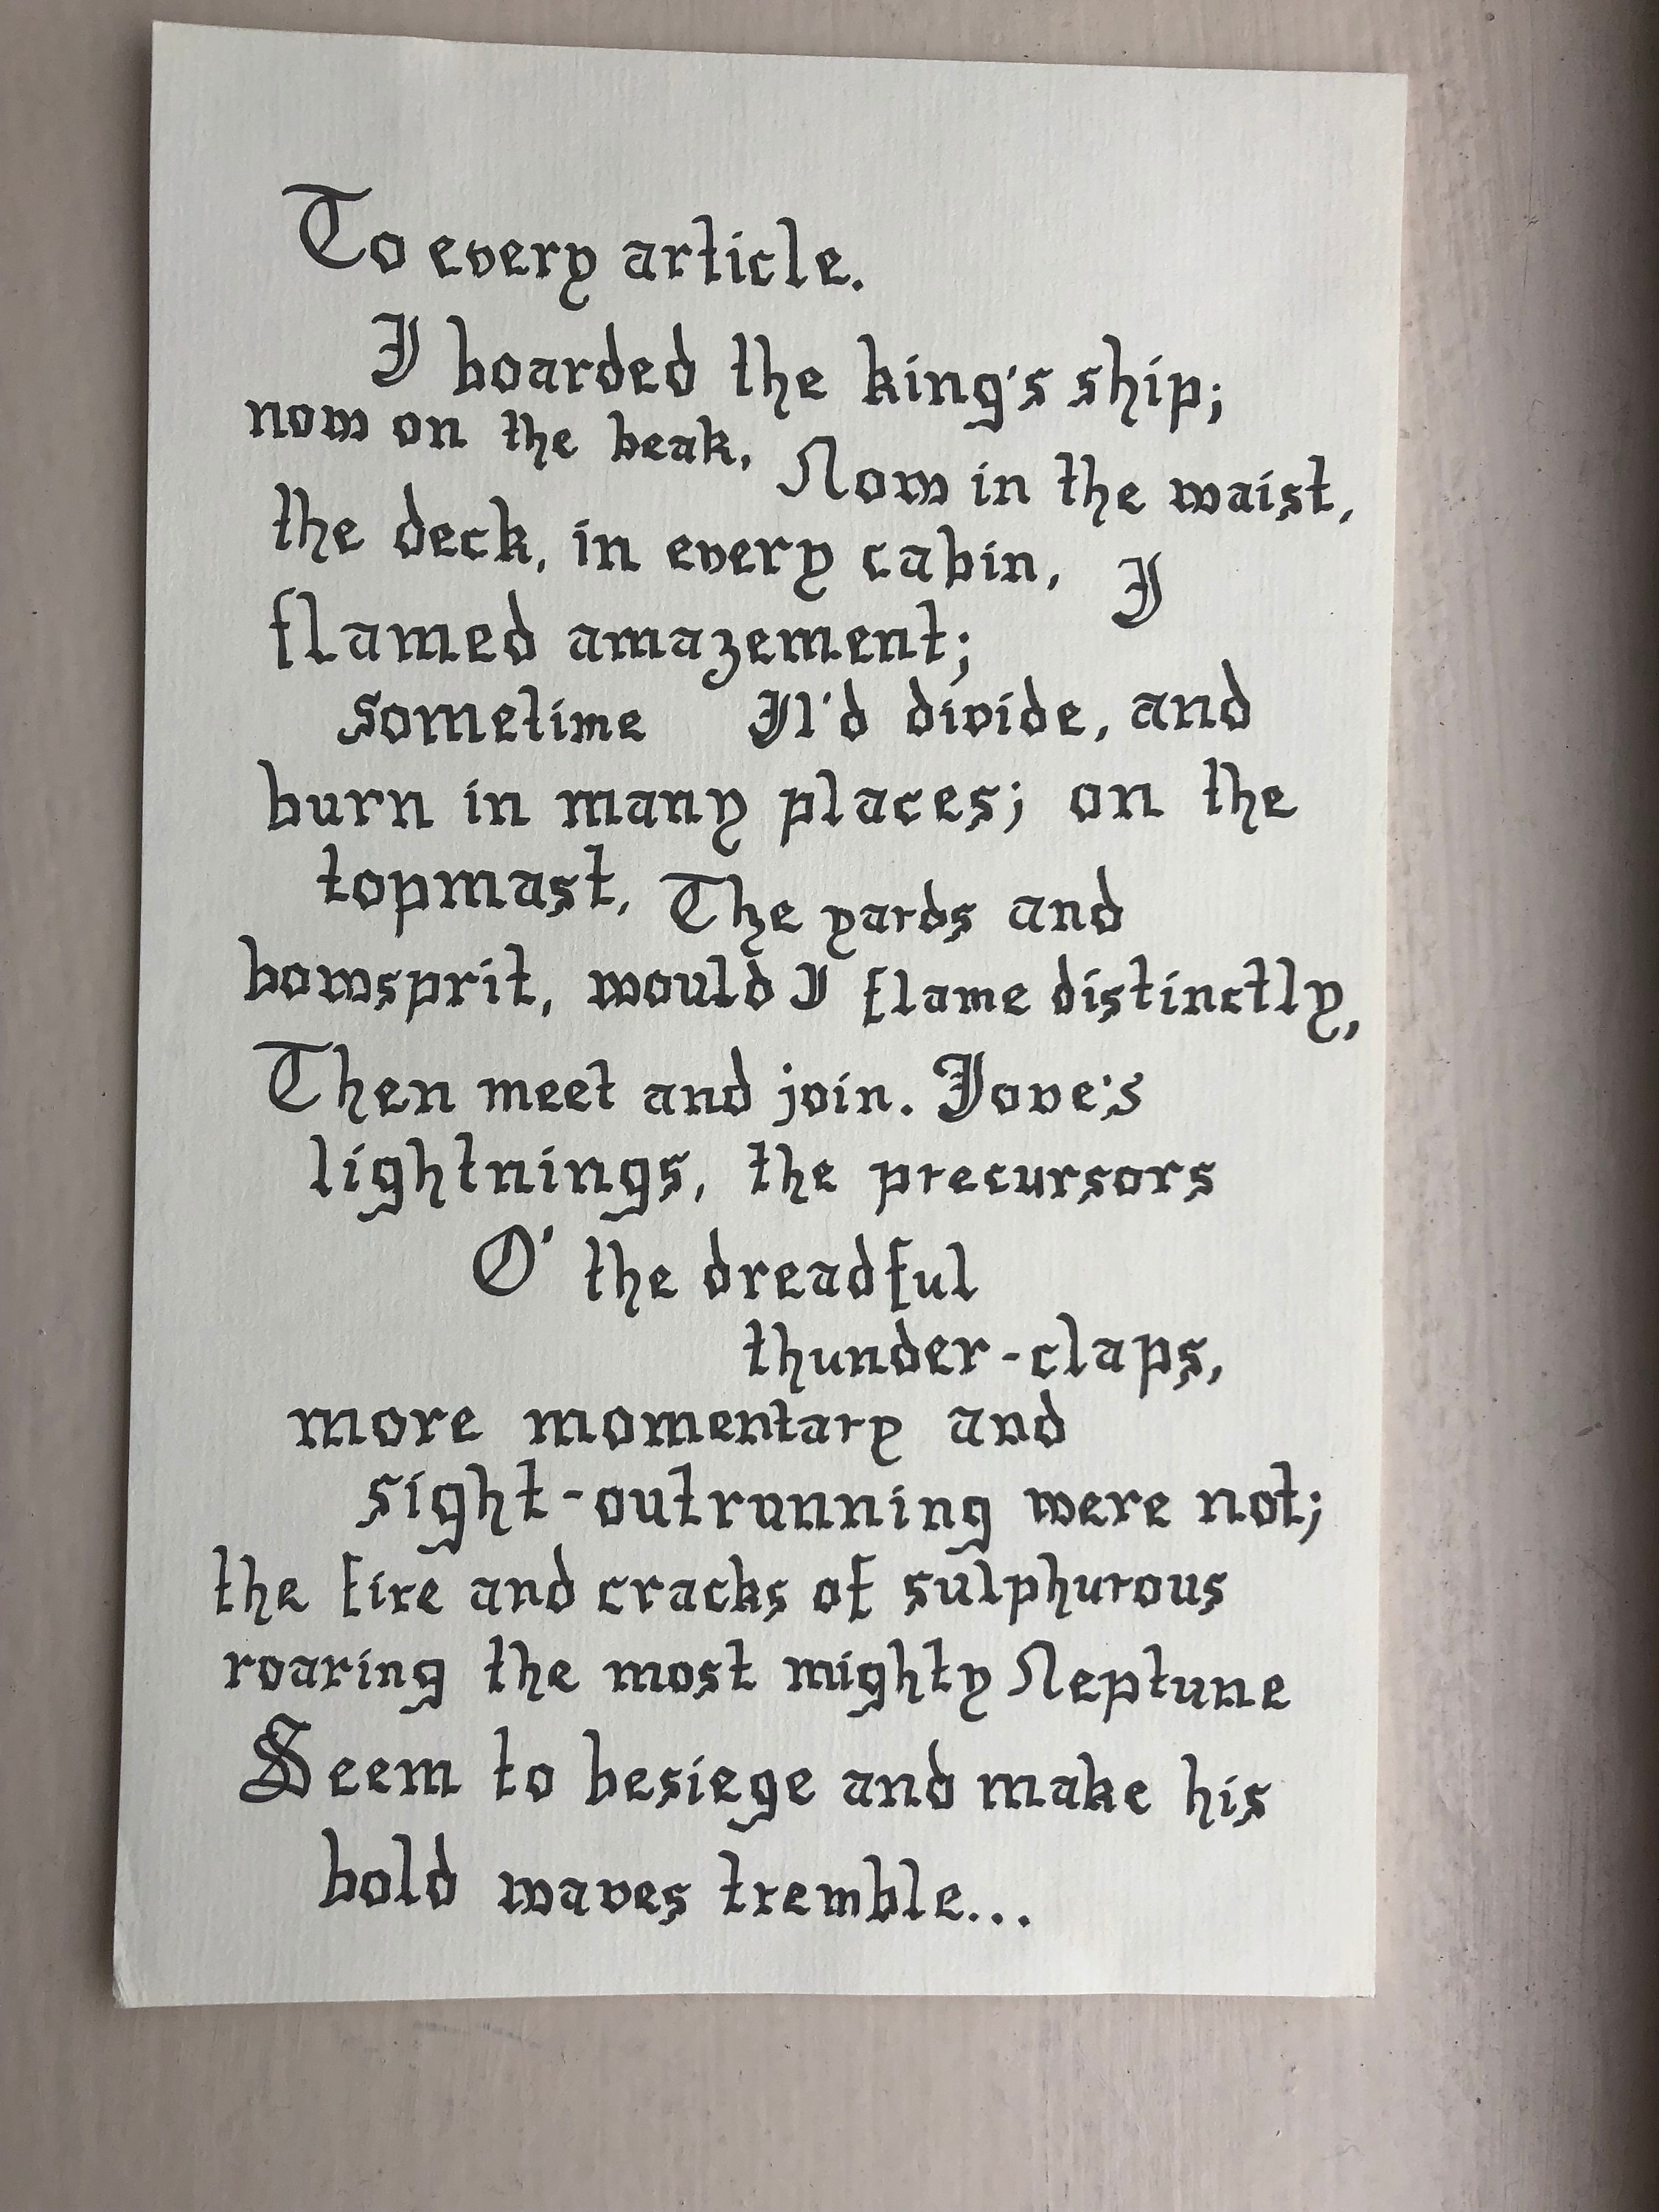 To every article.
I boarded the king's ship;
now on the beak, Now in the waist,
the deck, in every cabin, I
flamed amazement;
sometime I'l'd divide, and
burn in many places; on the
topmast, The yards and
bowsprit, would I flame distinctly,
Then meet and join. Jove's
lightnings, the precursors
O' the dreadful
thunder-claps,
more momentary and
sight-outrunning were not;
the fire and cracks of sulphurous
roaring the most mighty Neptune
Seem to besiege and make his
bold waves tremble...